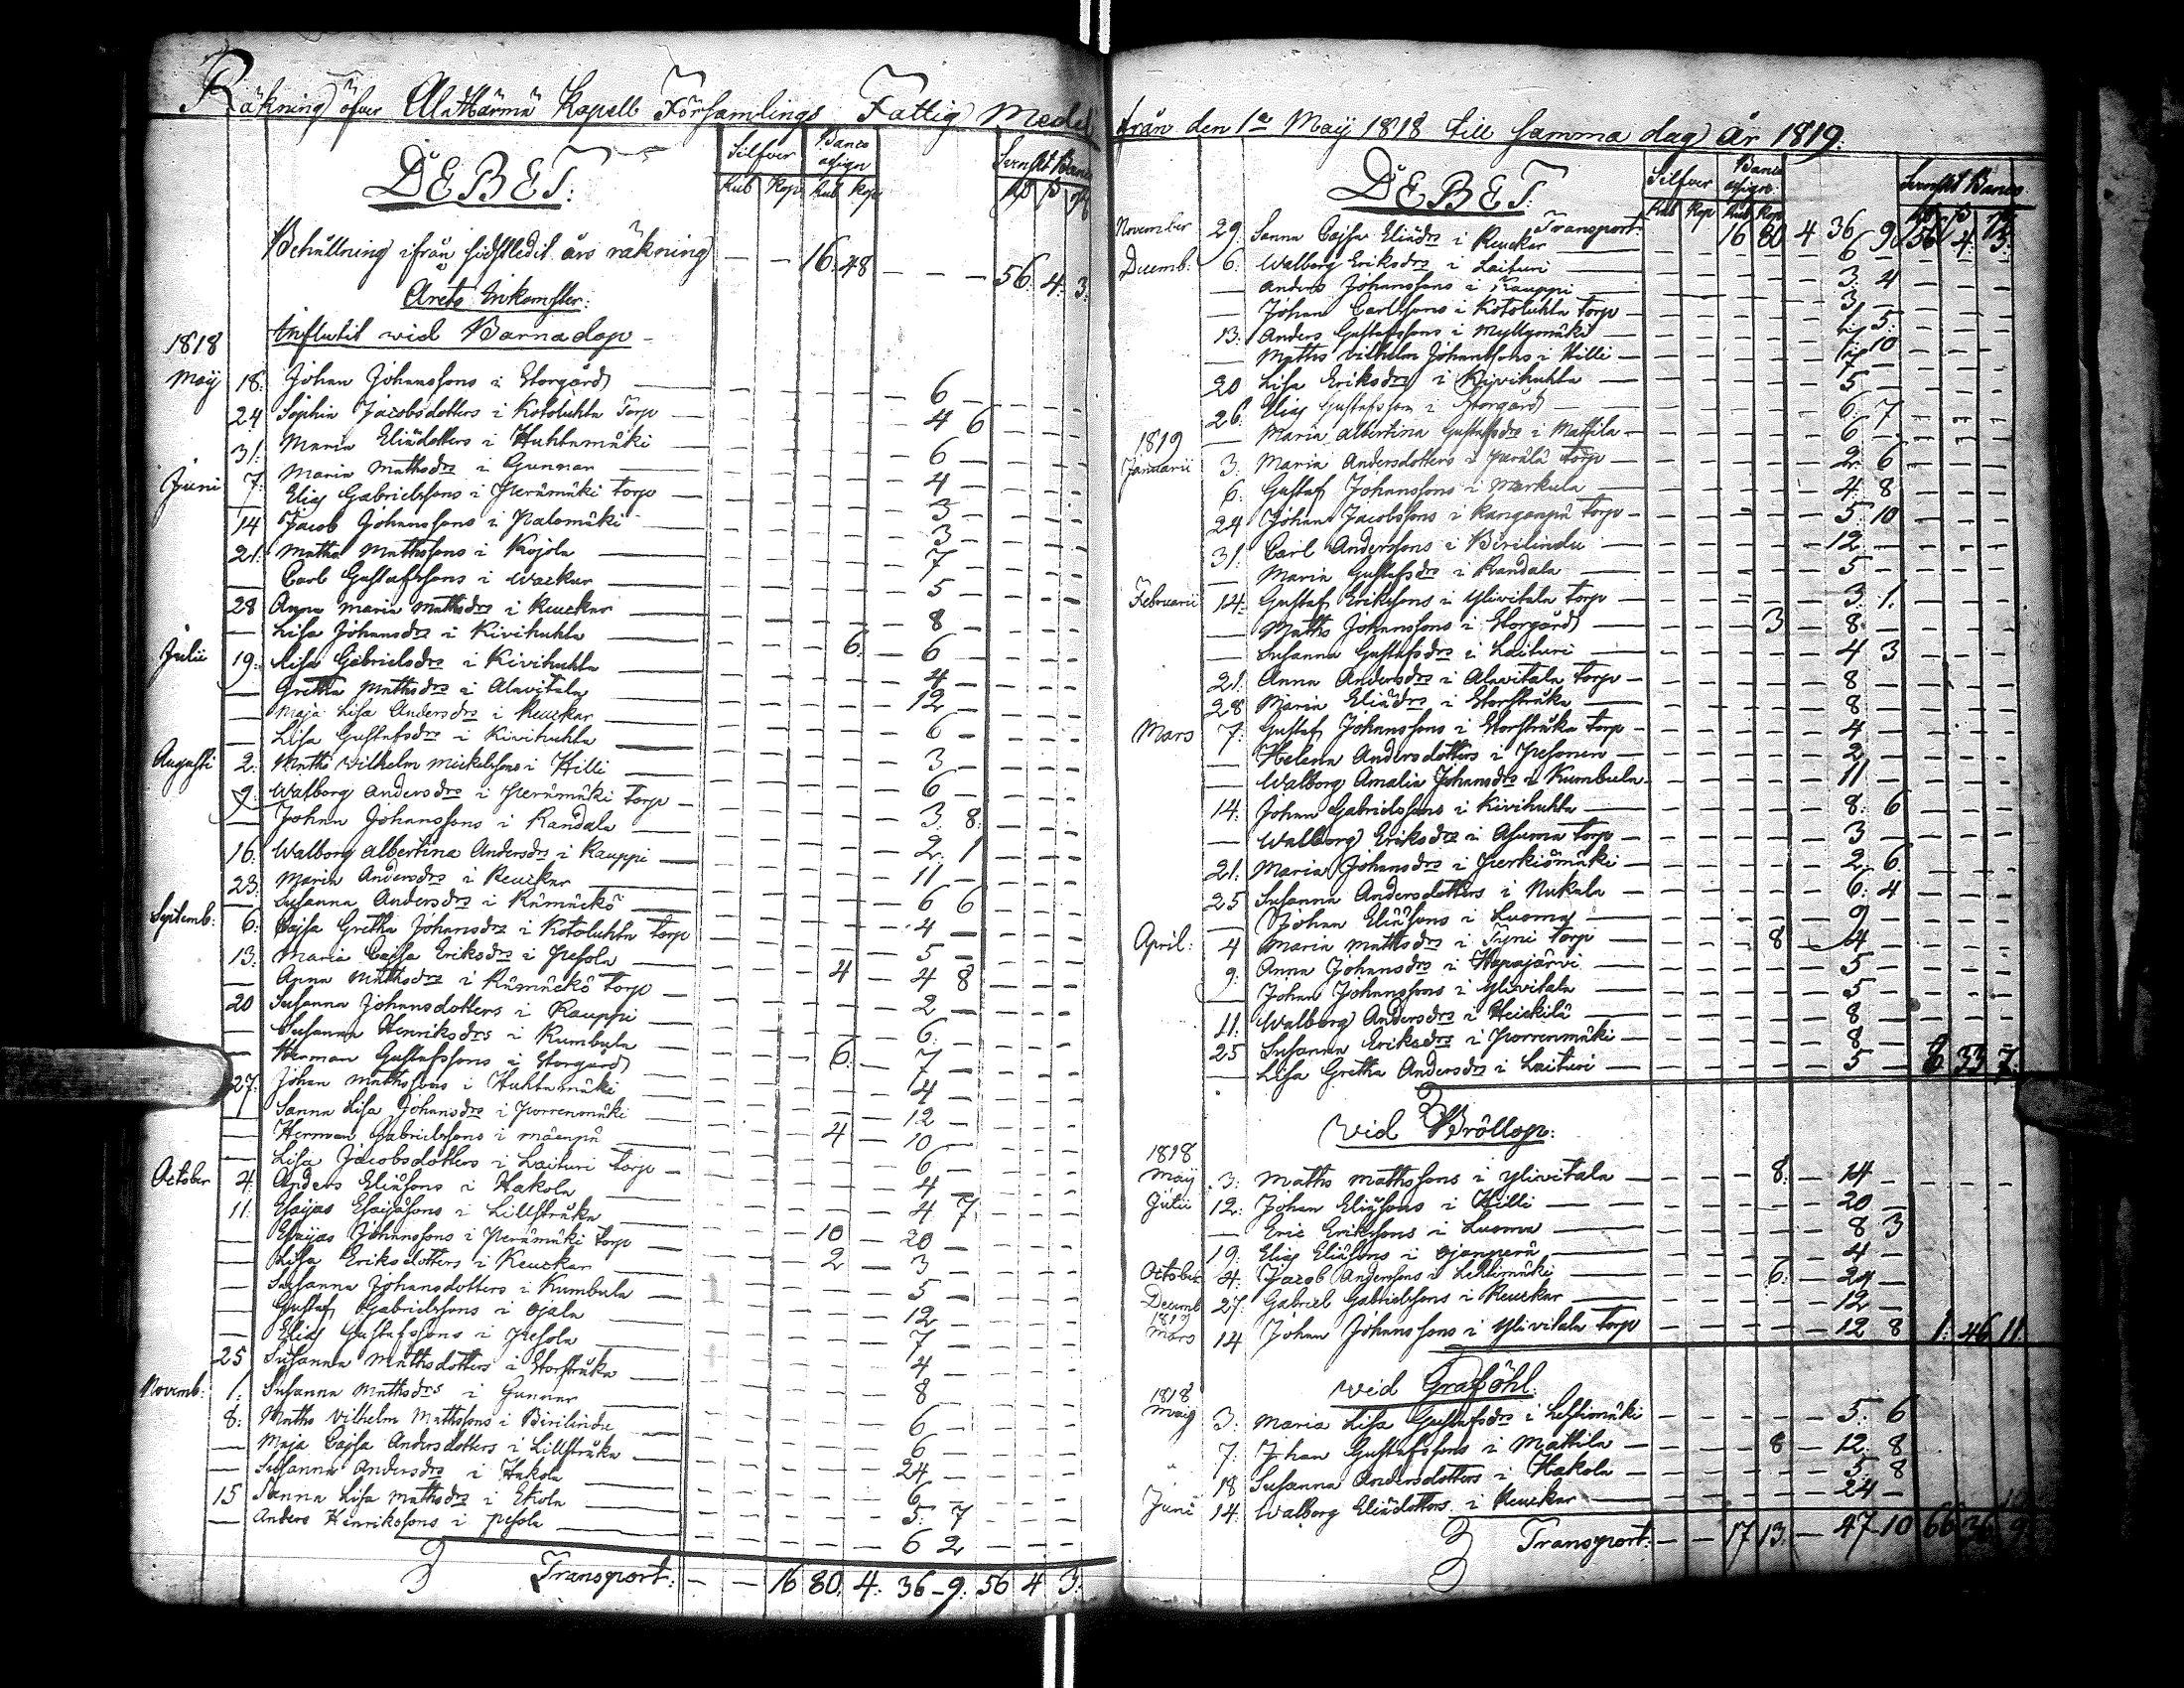 Räkning öfver Alahärmä Kapell Församlings Fattig Medel
DEBET:
Silfver Banco assign
Rub Kop Rub Kop
Behållning ifrån sidstledit års räkning — — 16. 48 — — — 56. 4. 3.
Årets Inkomster:
Influtit vid Barnadop
1818
Maij 18. Johan Johanssons i Storgård — 6 —
24 Sophia Jacobsdotters i Kotoluhta Torp — 4 6
31. Maria Eliädotters i Huhtamäki — 6 —
Juni 7. Maria Mathsdrs i Gunnar — 4 —
— Elias Gabrielssons i Perämäki torp — 3 —
14 Jacob Johanssons i Palomäki — 3 —
21. Maths Mathssons i Kojola — 7 —
— Carl Gustafssons i Wackar — 5 —
28 Anna Maria Mathsdrs i Reuckar — 8 —
— Lisa Johansdrs i Kivihuhta — 6. — 6 —
Julii 19. Lisa Gabrielsdrs i Kivihuhta — 4 —
— Gretha Mathsdrs i Alavitala — 12 —
— Maja Lisa Andersdrs i Reuckar — 6 —
— Lisa Gustafsdrs i Kivihuhta
Augusti 2. Maths Vilhelm Mickelssons i Hilli — 3 —
9. Walborg Andersdrs i Perämäki torp — 6 —
— Johan Johanssons i Randala — 3. 8.
16. Walborg Albertina Andersdrs i Kauppi — 2. 1
23. Maria Andersdrs i Reuckar — 11 —
— Susanna Andersdrs i Rämäckö — 6 6
Septemb: 6. Cajsa Gretha Johansdrs i Kotoluhta torp — 4 —
13. Maria Cajsa Eriksdrs i Pesola — 5 —
— Anna Mathsdrs i Rämäckö torp — 4 — 4 8
20 Susanna Johansdotters i Kauppi — 2 —
— Susanna Henriksdrs i Kumbula — 6. —
— Herman Gustafssons i Storgård — 6. — 7 —
27. Johan Mathssons i Huhtamäki — 4 —
— Sanna Lisa Johansdrs i Porrenmäki — 12 —
— Herman Gabrielssons i Mäenpä — 4 — 10 —
— Lisa Jacobsdotters i Laituri torp — 6 —
October 4. Anders Eliäsons i Hakola — 4 —
11. Esaijas Esaiäsons i Lillstråka — 4 7
— Esaijas Johanssons i Perämäki torp — 10 — 20 —
— Lisa Eriksdotters i Reuckar — 2 — 3 —
— Susanna Johansdotters i Kumbula — 5 —
— Gustaf Gabrielssons i Ojala — 12 —
— Elias Gustafssons i Pesola — 7 —
25 Susanna Mathsdotters i Storstråka — 4 —
Novemb: 1. Susanna Mathsdrs i Gunnar — 8 —
8. Maths Vilhelm Mathssons i Birilinda — 6 —
— Maja Cajsa Andersdotters i Lillstråka — 6 —
— Susanna Andersdrs i Hakola — 24 —
15 Sanna Lisa Mathsdrs i Ekola — 6 —
— Anders Henrikssons i Pesola — 5. 7
— 6 2
Transport: — — 16 80. 4. 36 — 9. 56 4 3.
från den 1a Maij 1818 till samma dag år 1819.
DEBET:
Silfver Banco assign
Rub Kop Rub Kop
Transport: 16 80 4 36 9 56 4. 3.
November 29. Sanna Cajsa Eliädrs i Reuckar — 6 —
Decemb: 6. Walborg Eriksdrs i Laituri — 3. 4
— Anders Johanssons i Kauppi — 3 —
— Johan Carlssons i Kotoluhta torp — 5.
13. Anders Gustafssons i Myllymäki — 10
— Maths Vilhelm Johanssons i Hilli — 7 —
20 Lisa Eriksdrs i Kivihuhta — 5 —
26. Elias Gustafsson i Storgård — 6. 7
1819
— Maria Albertina Gustafsdrs i Mattila — 6 —
Januarii 3. Maria Andersdotters i Perälä torp — 2. 6
6. Gustaf Johanssons i Markula — 4. 8
24 Johan Jacobssons i Kanganpä torp — 5. 10
31. Carl Anderssons i Birilinda — 12 —
— Maria Gustafsdrs i Randala — 5 —
Februarii 14. Gustaf Erikssons i Ylivitala torp — 3. 1.
— Maths Johanssons i Storgård — 3 — 8. —
— Susanna Gustafsdrs i Laituri — 4 3
21. Anna Andersdrs i Alavitala torp — 8 —
28 Maria Eliädrs i Storstråka — 8 —
Mars 7. Gustaf Johanssons i Storstråka torp — 4 —
— Helena Andersdotters i Pesonen — 2 —
— Walborg Amalia Johansdrs i Kumbula — 11 —
14. Johan Gabrielssons i Kivihuhta — 8. 6
— Walborg Eriksdrs i Asuma torp — 3 —
21. Maria Johansdrs i Perkiömäki — 2. 6
25 Susanna Andersdotters i Nukala — 6. 4
— Johan Eliäsons i Luoma — 9 —
April: 4 Maria Mathsdrs i Tyni torp — 8 — 4 —
9. Anna Johansdrs i Hepajärvi — 5 —
— Johan Johanssons i Ylivitala — 5 —
11. Walborg Andersdrs i Heickilä — 8 —
25 Susanna Eriksdrs i Porrenmäki — 8 —
— Lisa Gretha Andersdrs i Laituri — 5 — 8 33 7.
Vid Bröllop:
1818
Maij 3. Maths Mathssons i Ylivitala — 8. — 14 —
Julii 12. Johan Eliäsons i Hilli — 20 —
— Eric Erikssons i Luoma — 8 3
19. Elias Eliäsons i Ojanperä — 4 —
October 4. Jacob Anderssons i Lehtimäki — 6. — 24 —
Decemb 27. Gabriel Gabrielssons i Reuckar — 12 —
1819
Mars 14 Johan Johanssons i Ylivitala torp — 12 8 1. 46 11.
vid Graföhl.
1818
Maij 3. Maria Lisa Gustafsdrs i Lehtimäki — 5. 6
7. Johan Gustafssons i Mattila — 8 — 12. 8
18 Susanna Andersdotters i Hakola — 5. 8
Juni 14. Walborg Eliädotters i Reuckar — 24 —
Transport: — — 17 13. — 47 10 66 36 9